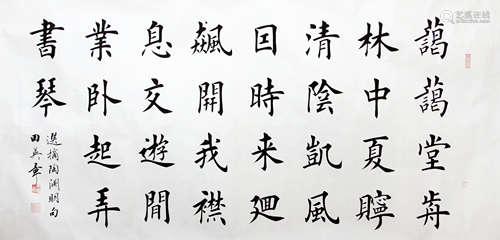 藹藹堂歬
林中夏貯
清陰凱風
囙時来廻
飆開我襟
息交遊間
業卧起弄
書琴
選摘陶淵明句
田英章